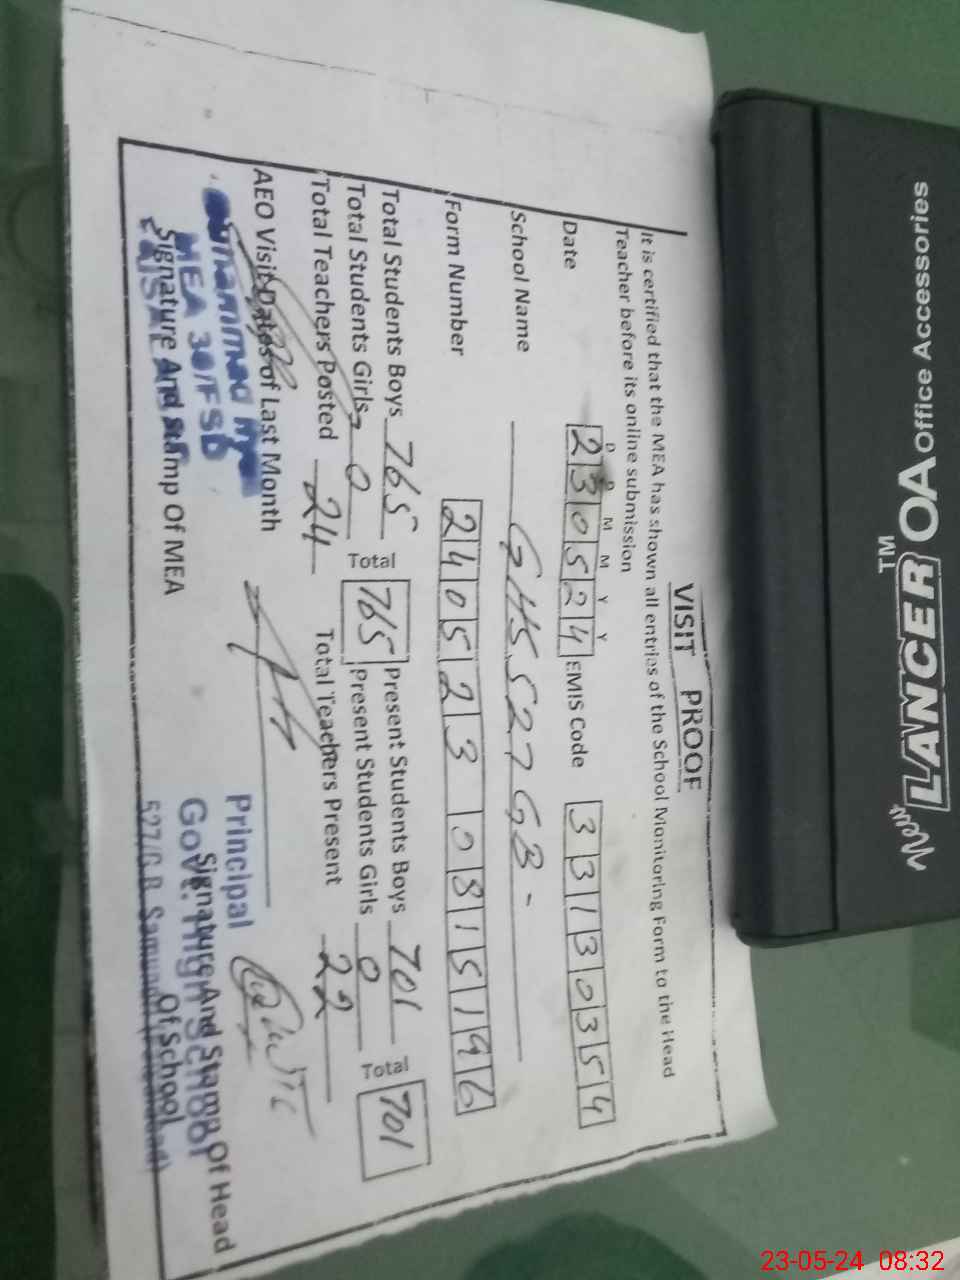 VISIT PROOF
It is certified that the MEA has shown all entries of the School Monitoring Form to the Head
Teacher before its online submission
D D M M Y Y
Date 230524 EMIS Code 33130354
School Name GHS 527 GB-
Form Number 2405230815196
Total Students Boys 765 Total 765 Present Students Boys 701 Total 701
Total Students Girls 0 Present Students Girls 0
Total Teachers Posted 24 Total Teachers Present 22
AEO Visit Dates of Last Month
MEA 30/FSD
Signature And Stamp Of MEA
Principal
Govt. High School
527/G.B. Samundri
Signature And Stamp Of Head
Of School
New LANCER OA Office Accessories
TM
23-05-24 08:32